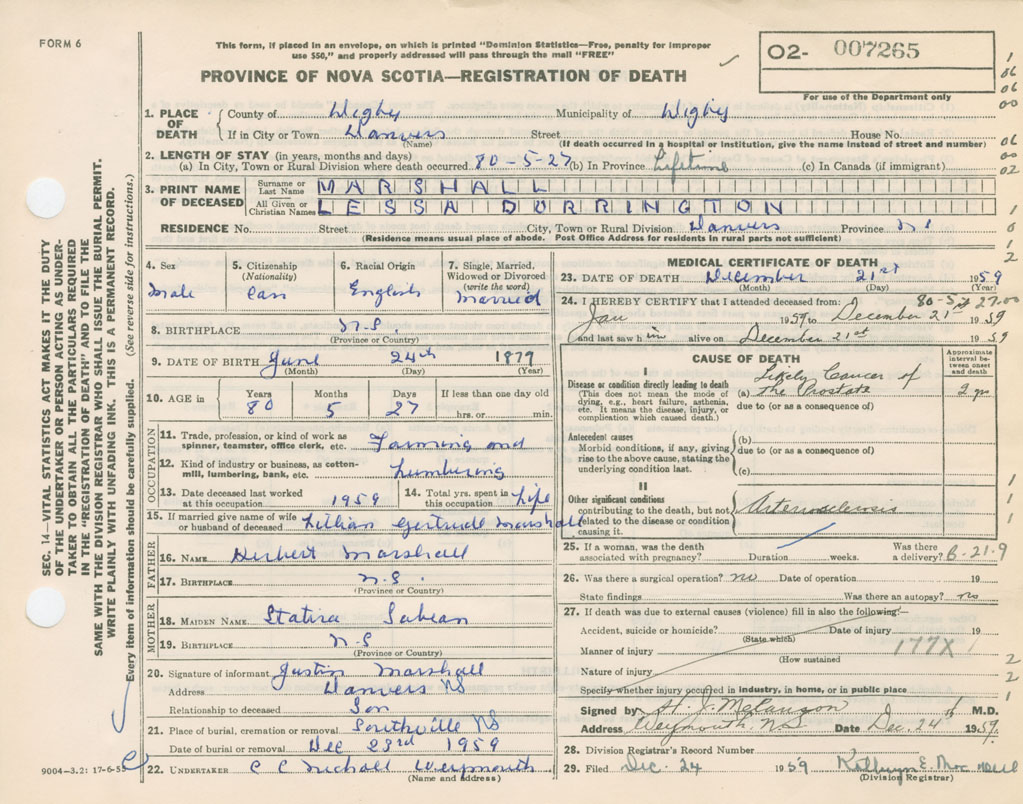 FORM 6
This form, if placed in an envelope, on which is printed "Dominion Statistics—Free, penalty for improper
use $50," and properly addressed will pass through the mail "FREE"
PROVINCE OF NOVA SCOTIA—REGISTRATION OF DEATH
O2- 007265
For use of the Department only
SEC. 14—VITAL STATISTICS ACT MAKES IT THE DUTY
OF THE UNDERTAKER OR PERSON ACTING AS UNDER-
TAKER TO OBTAIN ALL THE PARTICULARS REQUIRED
IN THE "REGISTRATION OF DEATH" AND TO FILE THE
SAME WITH THE DIVISION REGISTRAR WHO SHALL ISSUE THE BURIAL PERMIT.
WRITE PLAINLY WITH UNFADING INK. THIS IS A PERMANENT RECORD.
Every item of information should be carefully supplied. (See reverse side for instructions.)
1. PLACE OF DEATH County of Digby Municipality of Digby
If in City or Town Danvers Street House No.
(Name) (If death occurred in a hospital or institution, give the name instead of street and number)
2. LENGTH OF STAY (in years, months and days)
(a) In City, Town or Rural Division where death occurred 80-5-27 (b) In Province Lifetime (c) In Canada (if immigrant)
3. PRINT NAME OF DECEASED Surname or Last Name MARSHALL
All Given or Christian Names LESSA DURRINGTON
RESIDENCE No. Street City, Town or Rural Division Danvers Province N S
(Residence means usual place of abode. Post Office Address for residents in rural parts not sufficient)
4. Sex Male
5. Citizenship (Nationality) Can
6. Racial Origin English
7. Single, Married, Widowed or Divorced (write the word) Married
8. BIRTHPLACE N.S.
(Province or Country)
9. DATE OF BIRTH June 24th 1879
(Month) (Day) (Year)
10. AGE in Years 80 Months 5 Days 27 If less than one day old hrs. or min.
OCCUPATION
11. Trade, profession, or kind of work as spinner, teamster, office clerk, etc. Farming and
12. Kind of industry or business, as cotton-mill, lumbering, bank, etc. Lumbering
13. Date deceased last worked at this occupation 1959
14. Total yrs. spent in this occupation Life
15. If married give name of wife or husband of deceased Lillian Gertrude Marshall
FATHER
16. NAME Herbert Marshall
17. BIRTHPLACE N.S.
(Province or Country)
MOTHER
18. MAIDEN NAME Statira Sabean
19. BIRTHPLACE N-S
(Province or Country)
20. Signature of informant Justin Marshall
Address Danvers NS
Relationship to deceased Son
21. Place of burial, cremation or removal Southville NS
Date of burial or removal Dec 23rd 1959
22. UNDERTAKER C C Weymouth
(Name and address)
9004-3.2: 17-6-55
MEDICAL CERTIFICATE OF DEATH
23. DATE OF DEATH December 21st 1959
(Month) (Day) (Year)
80-5-27.00
24. I HEREBY CERTIFY that I attended deceased from:
Jan 1959 to December 21st 1959
and last saw him alive on December 21st 1959
CAUSE OF DEATH
Approximate interval between onset and death
I
Disease or condition directly leading to death
(This does not mean the mode of dying, e.g., heart failure, asthenia, etc. It means the disease, injury, or complication which caused death.)
(a) Likely Cancer of The Prostate 2 yr
due to (or as a consequence of)
Antecedent causes
Morbid conditions, if any, giving rise to the above cause, stating the underlying condition last.
(b)
due to (or as a consequence of)
(c)
II
Other significant conditions
contributing to the death, but not related to the disease or condition causing it.
Arteriosclerosis
25. If a woman, was the death associated with pregnancy? Duration weeks. Was there a delivery? B-21.9
26. Was there a surgical operation? no Date of operation 19
State findings Was there an autopsy? no
27. If death was due to external causes (violence) fill in also the following:—
Accident, suicide or homicide? Date of injury 19
(State which)
Manner of injury 177X
(How sustained
Nature of injury
Specify whether injury occurred in industry, in home, or in public place
Signed by H. J. Melançon M.D.
Address Weymouth, N.S. Date Dec. 24th 1959.
28. Division Registrar's Record Number
29. Filed Dec. 24 1959 Kathryn E.
(Division Registrar)